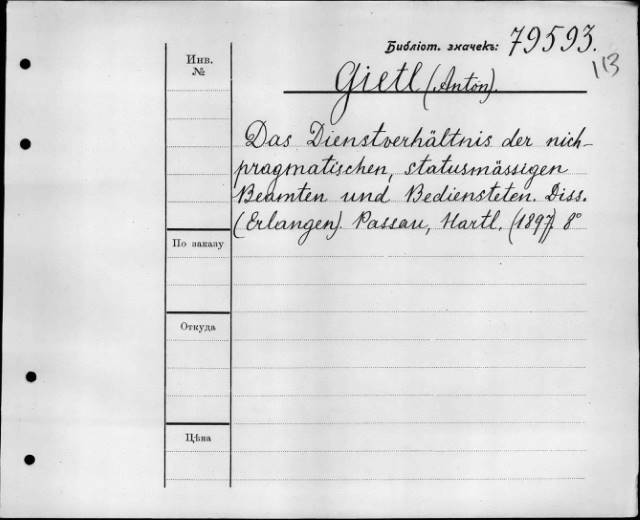 Библіот. значекъ: 79593.
113
Инв. №
Gietl (Anton).
Das Dienstverhältnis der nich-
pragmatischen, statusmässigen
Beamten und Bediensteten. Diss.
(Erlangen). Passau, Hartl. (1897). 8°
По заказу
Откуда
Цѣна